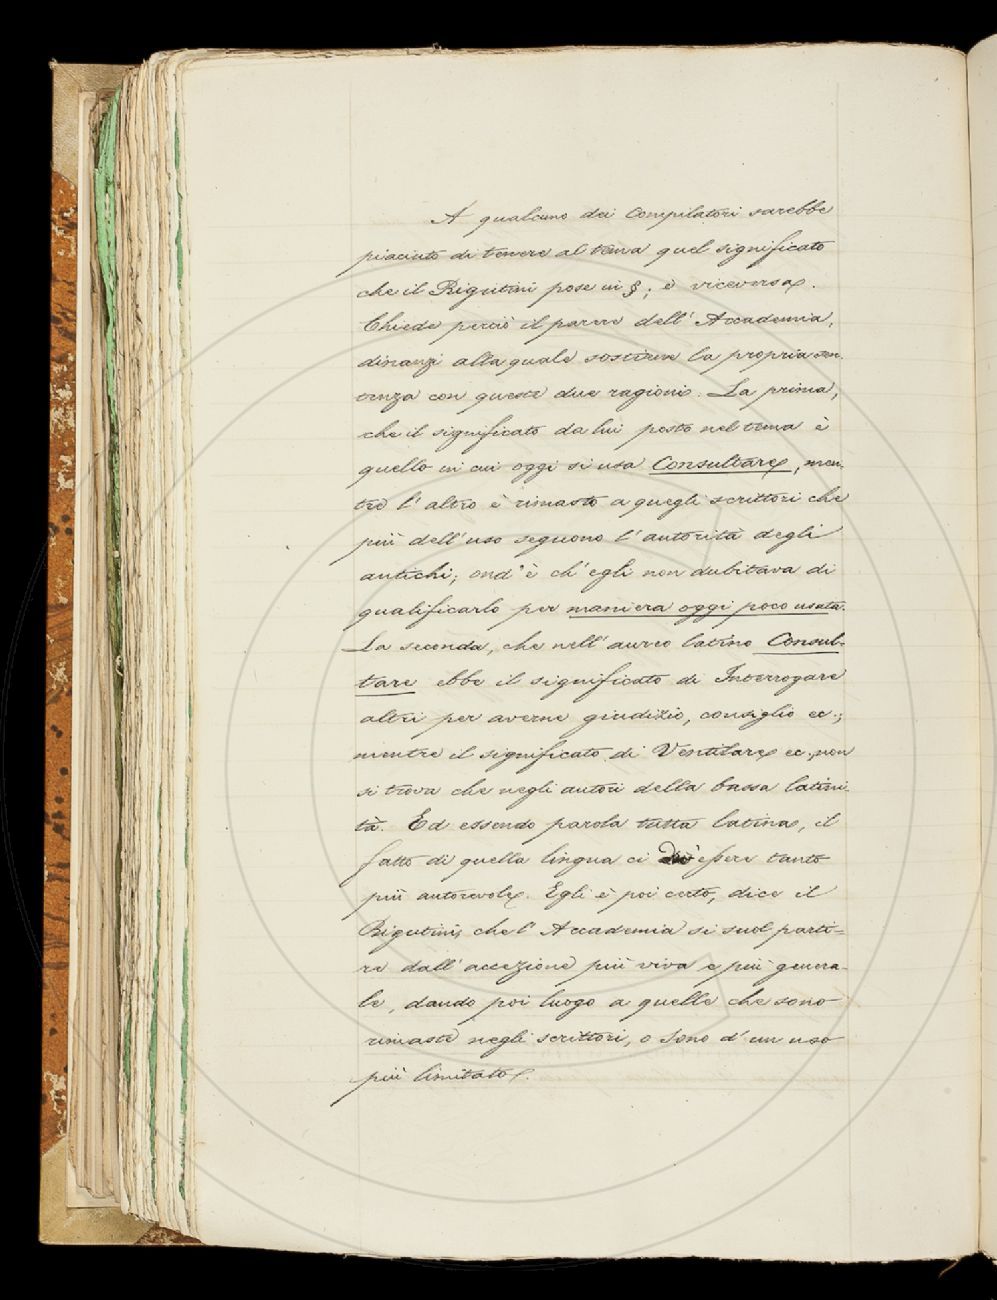 A qualcuno dei Compilatori sarebbe
piaciuto di tenere al tema quel significato
che il Rigutini pose in §; e viceversa.
Chiede perciò il parere dell' Accademia,
dinanzi alla quale sostiene la propria sen-
tenza con queste due ragioni. La prima,
che il significato da lui posto nel tema è
quello in cui oggi si usa Consultare, men-
tre l' altro è rimasto a quegli scrittori che
più dell' uso seguono l' autorità degli
antichi; ond' è ch' egli non dubitava di
qualificarlo per maniera oggi poco usata.
La seconda, che nell' aureo latino Consul-
tare ebbe il significato di Interrogare
altri per averne giudizio, consiglio ec.;
mentre il significato di Ventilare ec. non
si trova che negli autori della bassa latini-
tà. Ed essendo parola tutta latina, il
fatto di quella lingua ci essere tanto
più autorevole. Egli è poi certo, dice il
Rigutini, che l' Accademia si suol parti=
re dall' accezione più viva e più genera-
le, dando poi luogo a quelle che sono
rimaste negli scrittori, o sono d' un uso
più limitato.